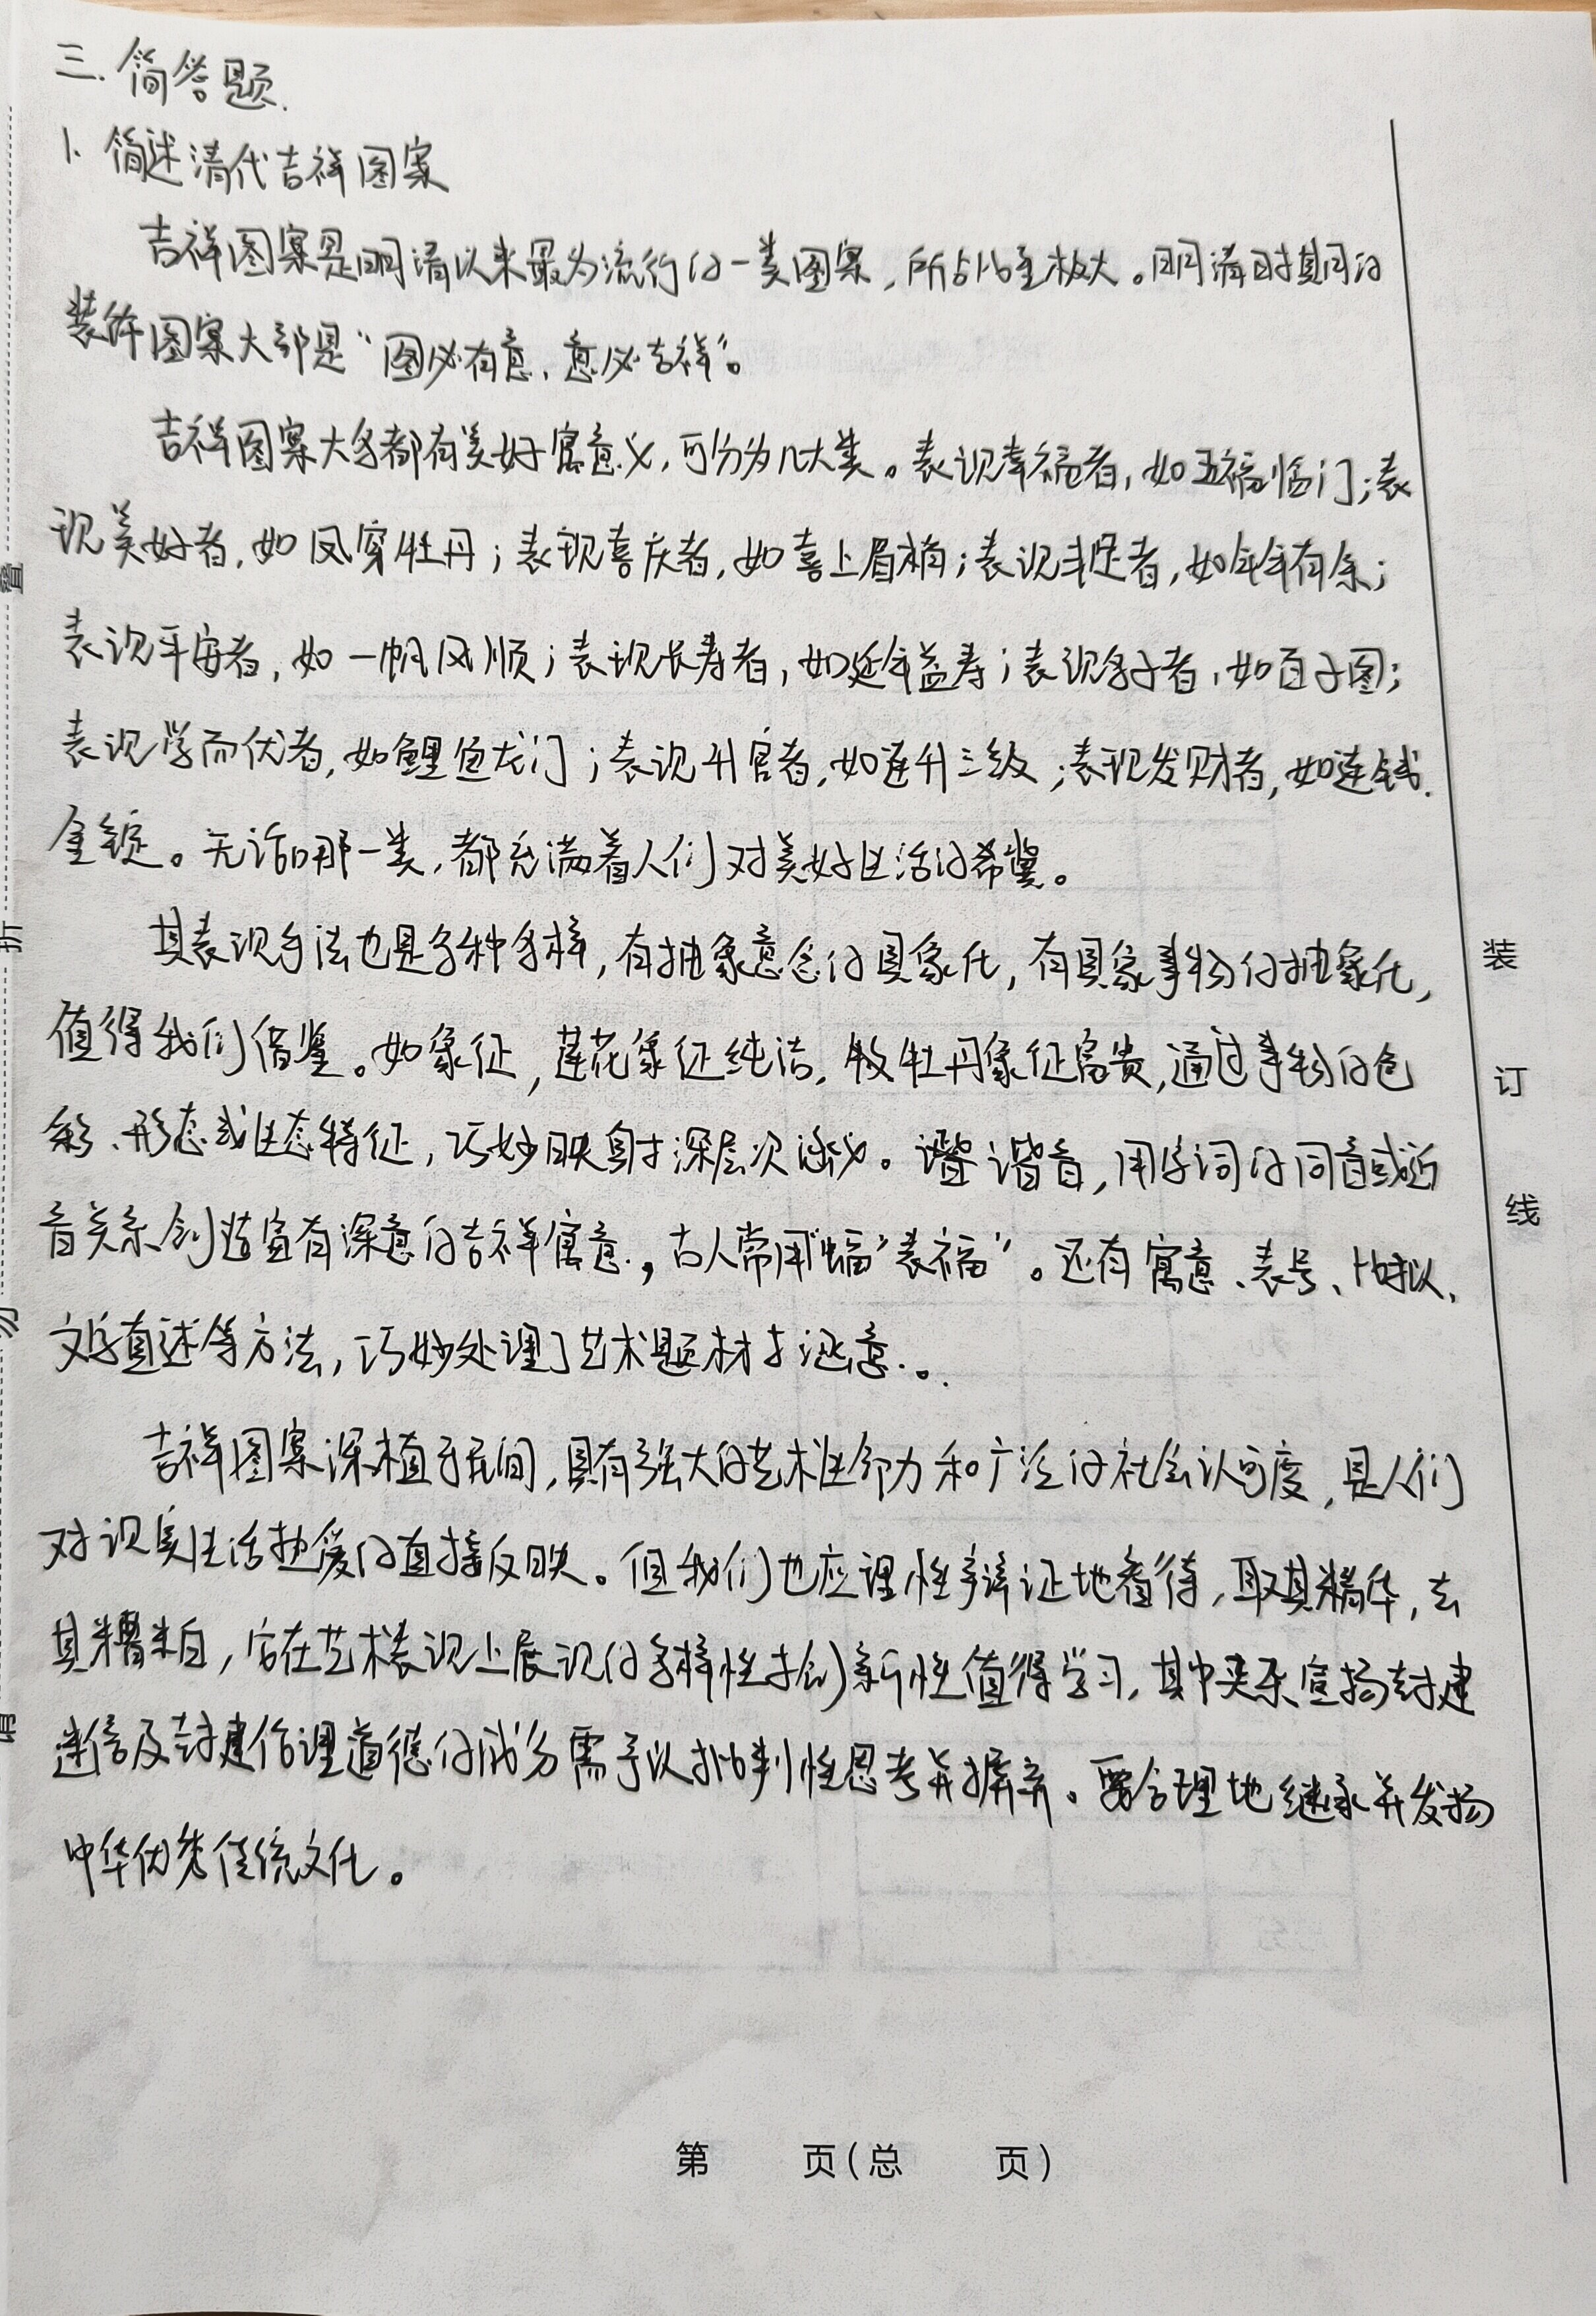 三.简答题.
1、简述清代吉祥图案
吉祥图案是明清以来最为流行的一类图案,所占比重极大。明清时期的
装饰图案大部是“图必有意、意必吉祥”。
吉祥图案大多都有美好寓意义,可分为几大类。表现幸福者,如五福临门;表
现美好者,如凤穿牡丹;表现喜庆者,如喜上眉梢;表现丰足者,如年年有余;
表现平安者,如一帆风顺;表现长寿者,如延年益寿;表现多子者,如百子图;
表现学而优者,如鲤鱼龙门;表现升官者,如连升三级;表现发财者,如连钱.
金锭。无论哪一类,都充满着人们对美好生活的希冀。
其表现手法也是多种多样,有抽象意念的具象化,有具象事物的抽象化,
值得我们借鉴。如象征,莲花象征纯洁,牡丹象征富贵,通过事物的色
彩、形态或生态特征,巧妙映射深层次涵义。谐音,用字词的同音或近
音关系创造富有深意的吉祥寓意.,古人常用“蝠”表福”。还有寓意、表号、比拟、
文字直述等方法,巧妙处理了艺术题材与涵意.。
吉祥图案深植于民间,具有强大的艺术生命力和广泛的社会认可度,是人们
对现实生活热爱的直接反映。但我们也应理性辩证地看待,取其精华,去
其糟粕,它在艺术表现上展现的多样性与创新性值得学习,其中夹杂宣扬封建
迷信及封建伦理道德的成分需予以批判性思考并摒弃。要合理地继承并发扬
中华优秀传统文化。
装
订
线
第 页(总 页)